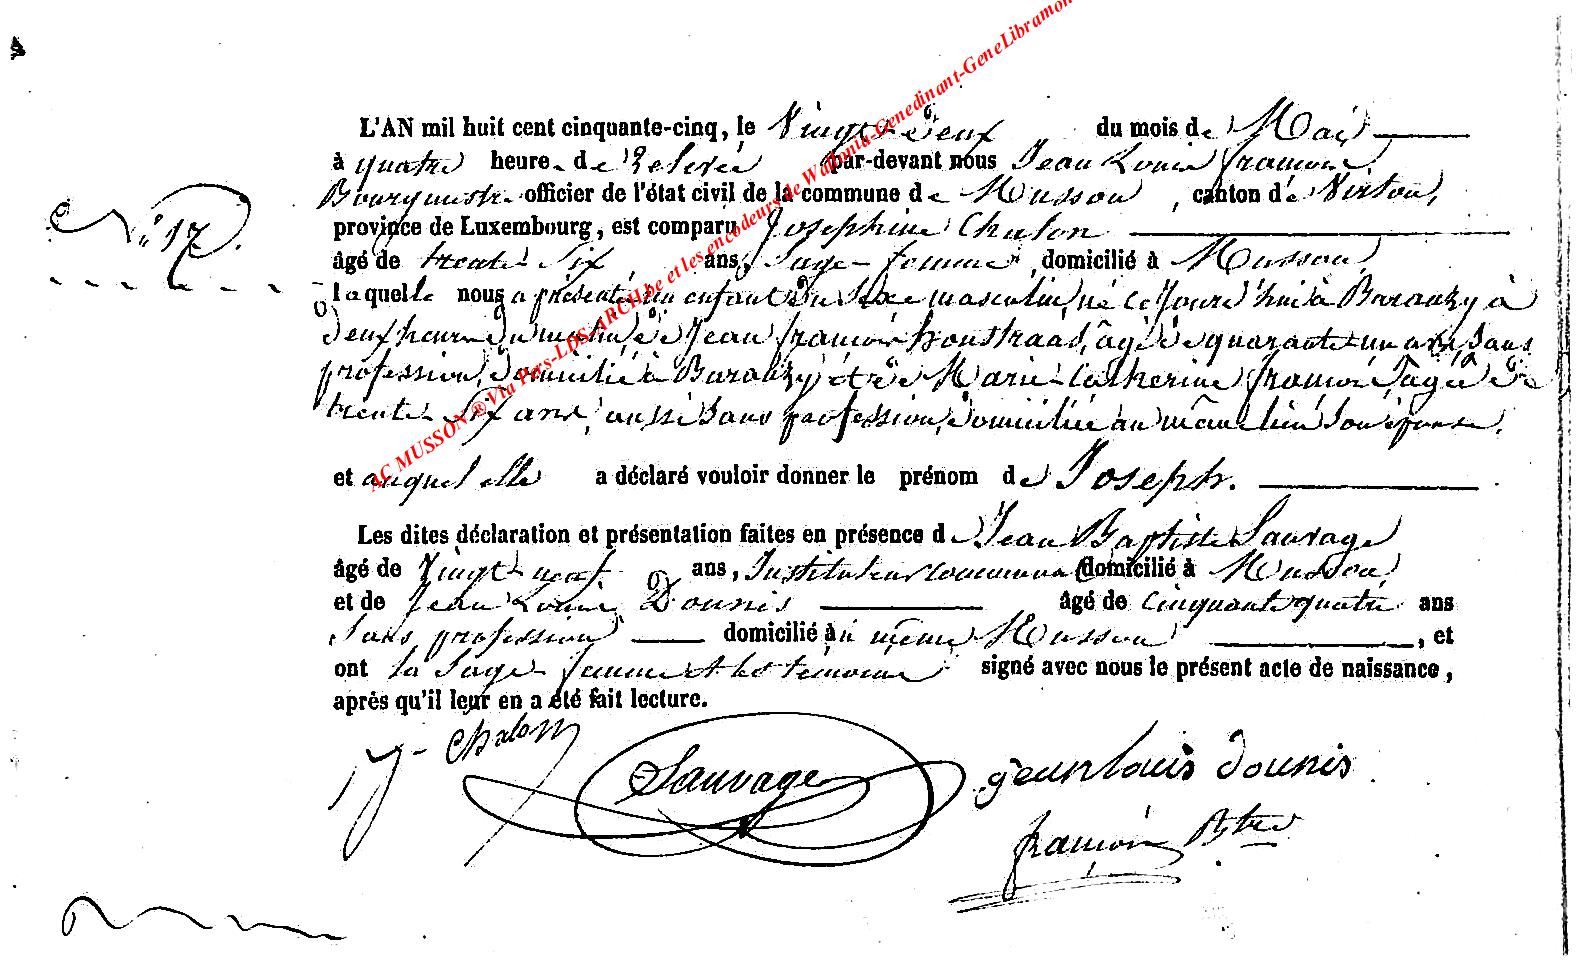 L'AN mil huit cent cinquante-cinq, le Vingt-deux du mois de Mai
à quatre heure de Relevée par-devant nous Jean Louis françois
Bourgmestre officier de l'état civil de la commune de Musson, canton de Virton,
N° 17.
province de Luxembourg, est comparu Josephine Chalon
âgé de trente Six ans, Sage-femme, domicilié à Musson
laquelle nous a présenté un enfant du Sexe masculin, né ce jourd'hui à Baranzy à
deux heure du matin, de Jean françois âgé de quarante-un ans, Sans
profession, domicilié à Baranzy et de Marie-Catherine françois âgée de
trente-Six ans, aussi Sans profession, domiciliée au même lieu Son épouse,
et auquel elle a déclaré vouloir donner le prénom de Joseph.
Les dites déclaration et présentation faites en présence de Jean Baptiste Sauvage
âgé de Vingt-neuf ans, Instituteur communal domicilié à Musson,
et de Jean Louis Dounis âgé de cinquante quatre ans
Sans profession domicilié à même Musson, et
ont la Sage-femme et les témoins signé avec nous le présent acte de naissance,
après qu'il leur en a été fait lecture.
J- Chalon
Sauvage
jean louis dounis
françois Bgtre
AC MUSSON ® Via Pays-LDS-ARCH.be et les encodeurs de Wallonia-Genedinant-GeneLibramon